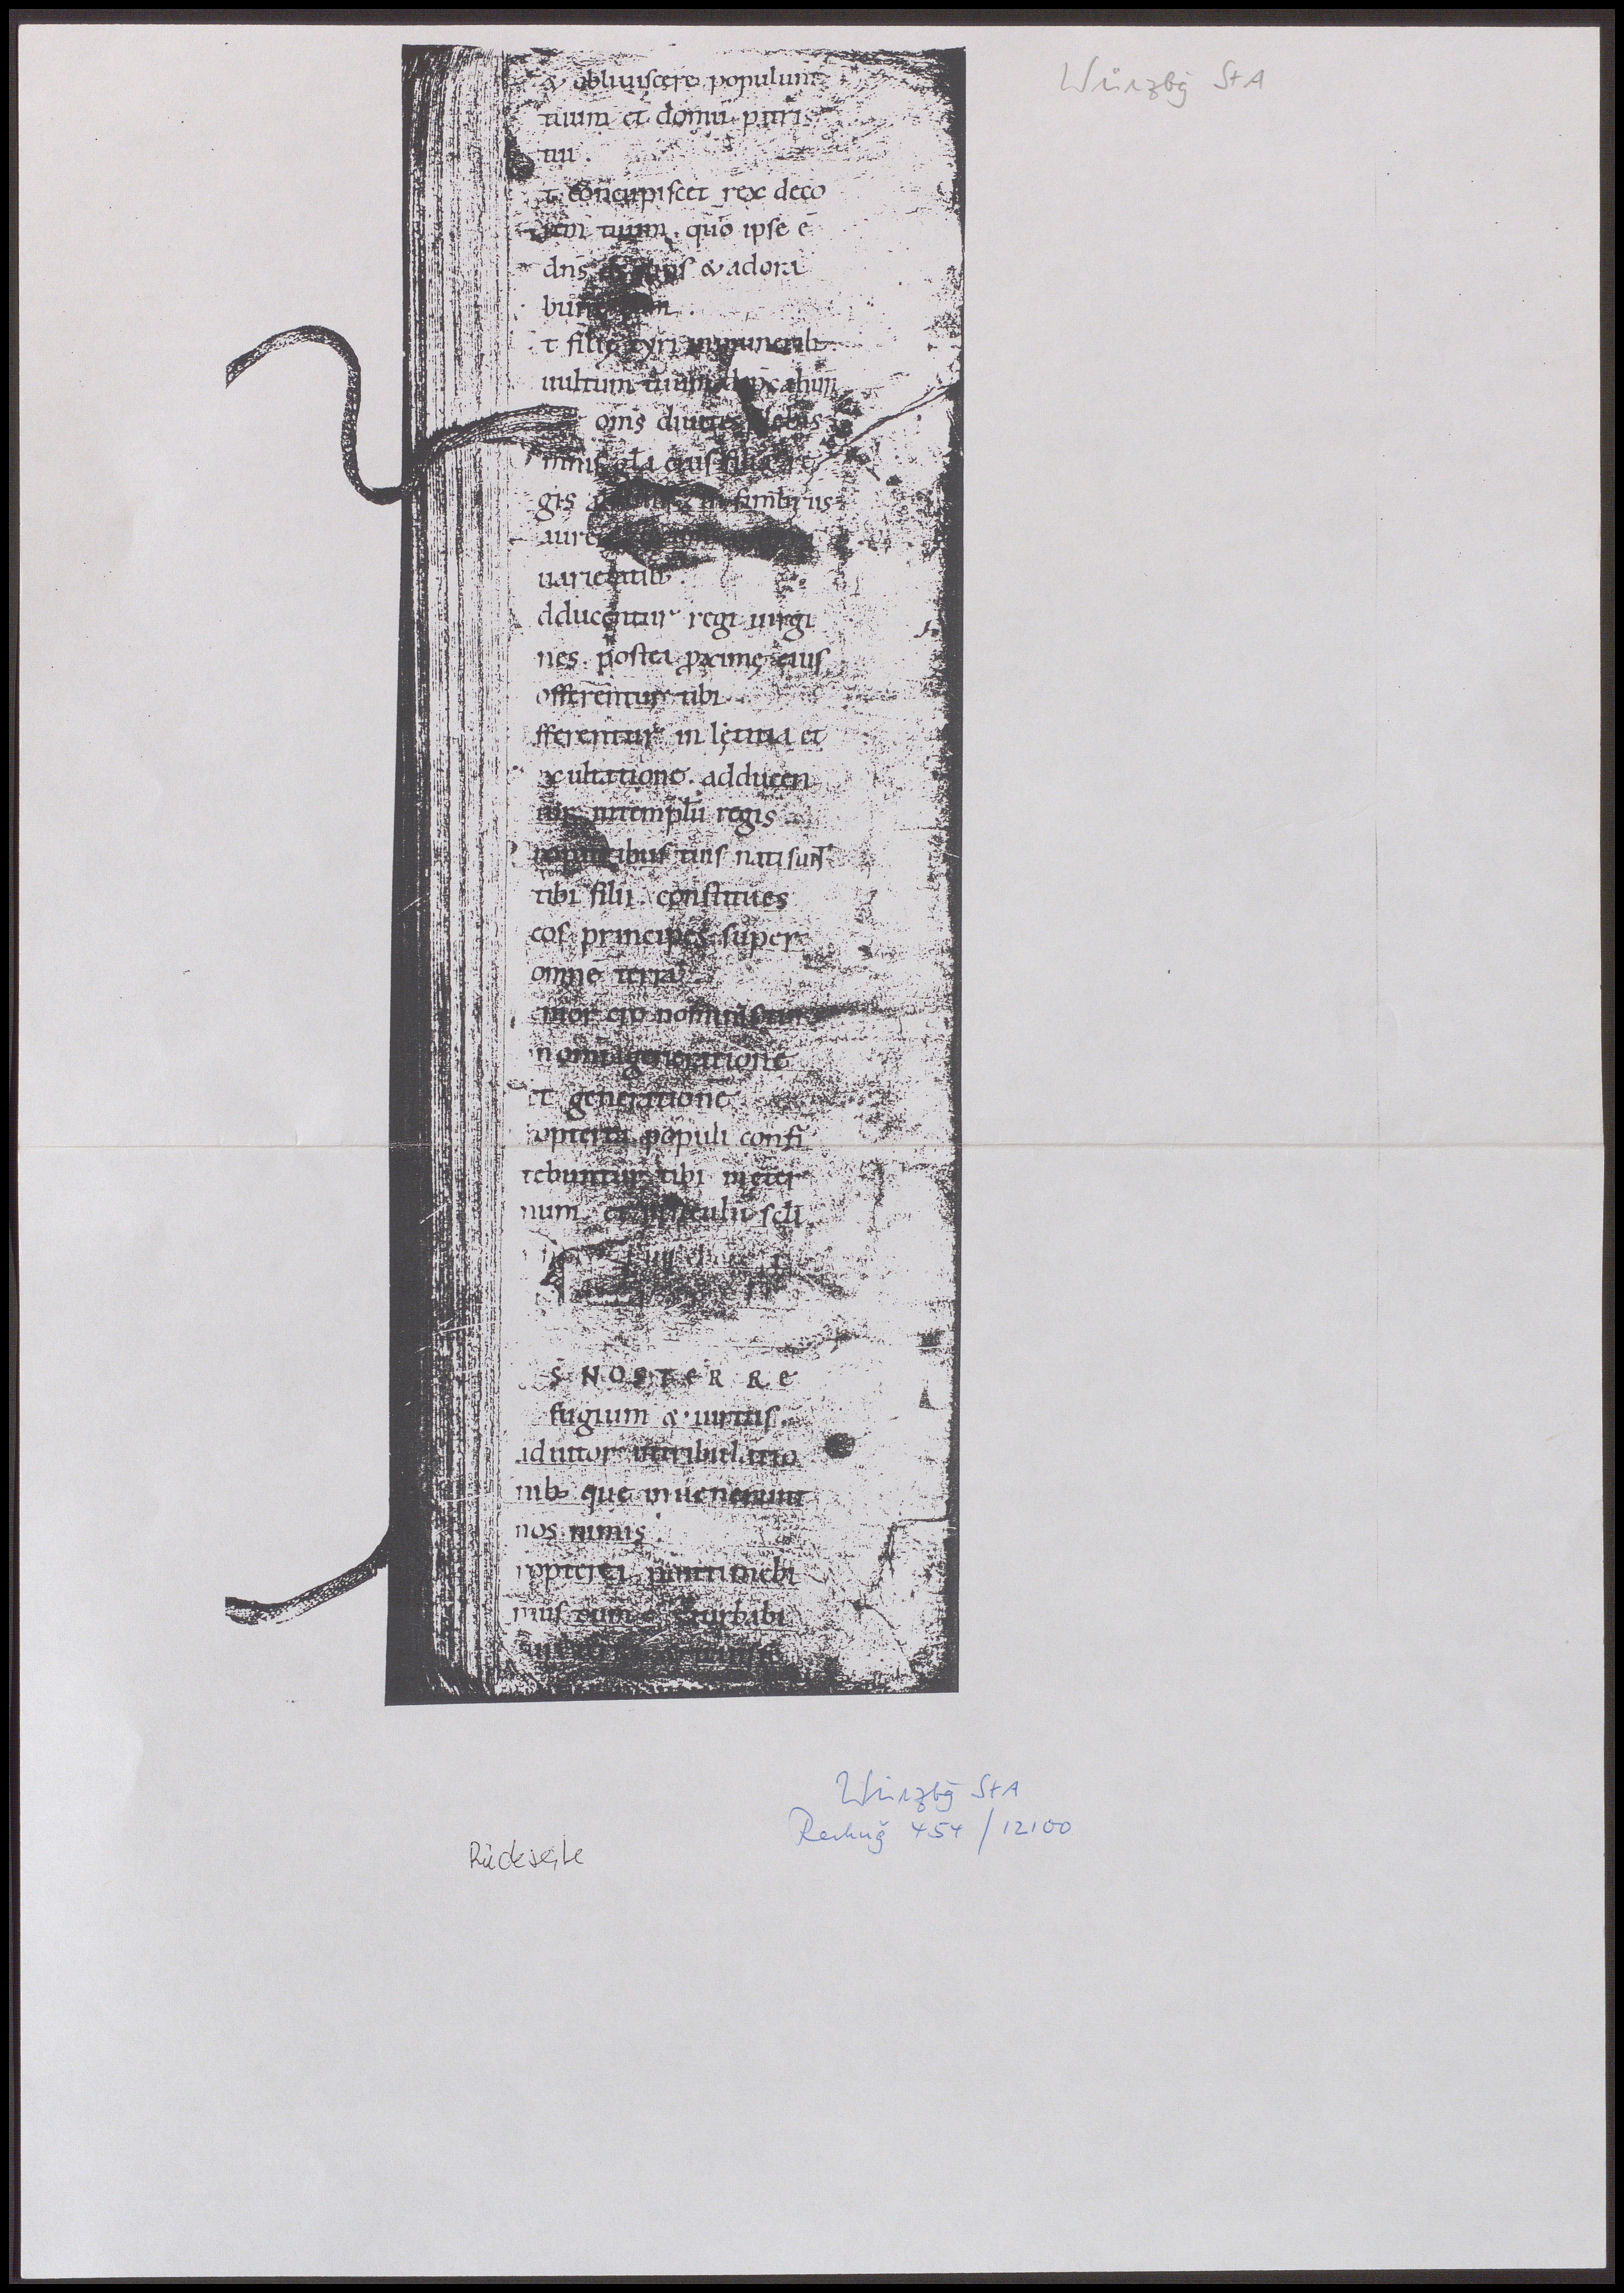 Würzbg StA
& obliuiscere populum
tuum et domū patris
tui.
t concupiscet rex deco
rem tuum. quō ipse ē
dn̄s tuus & adora
bunt eum.
t filię tyri in munerib;
uultum tuum dep̄cabunt
om̄s diuites plebis
mnis gl̄a eius filiae re
gis in fimbriis
aureis
uarietatib;
dducentur regi uirgi
nes. postea p̄ximę eius
offerentur tibi
fferentur in lętitia et
xultatione. adducen
tur in templū regis
ro patribus tuis nati sunt
tibi filii. constitues
eos principes super
omnē terrā
mor ero nominis tui
in omni generatione
et generatione
opterea populi confi
tebuntur tibi in ęter
num. et in sęculū sc̄li
S NOSTER RE
fugium & uirtus.
adiutor in tribulatio
nib; que inuenerunt
nos nimis.
ropterea non timebi
mus dum turbabi
Würzbg StA
Rechng 454 / 12100
Rückseite